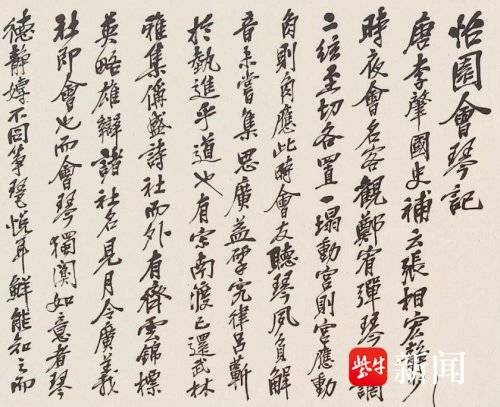 怡園會琴記
唐李肇國史補云張相宏靖少
時夜會名客觀鄭宥彈琴調
二絃至切各置一榻動宮則宮應動
角則角應此時會友聽琴夙負解
音未嘗集思廣益揅究律呂蘄
於埶進乎道也有宋南渡已還武林
雅集偁盛詩社而外有齊雲錦標
英略雄辯諸社名見月令廣義
社即會也而會琴獨闕如意者琴
德靜嫥不同箏琶悅耳鮮能知之而
紫牛新闻